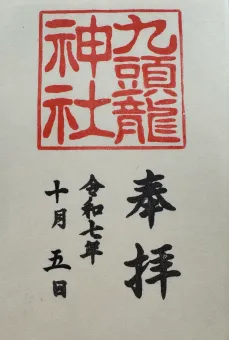 九頭龍
神社
奉拝
令和七年
十月五日